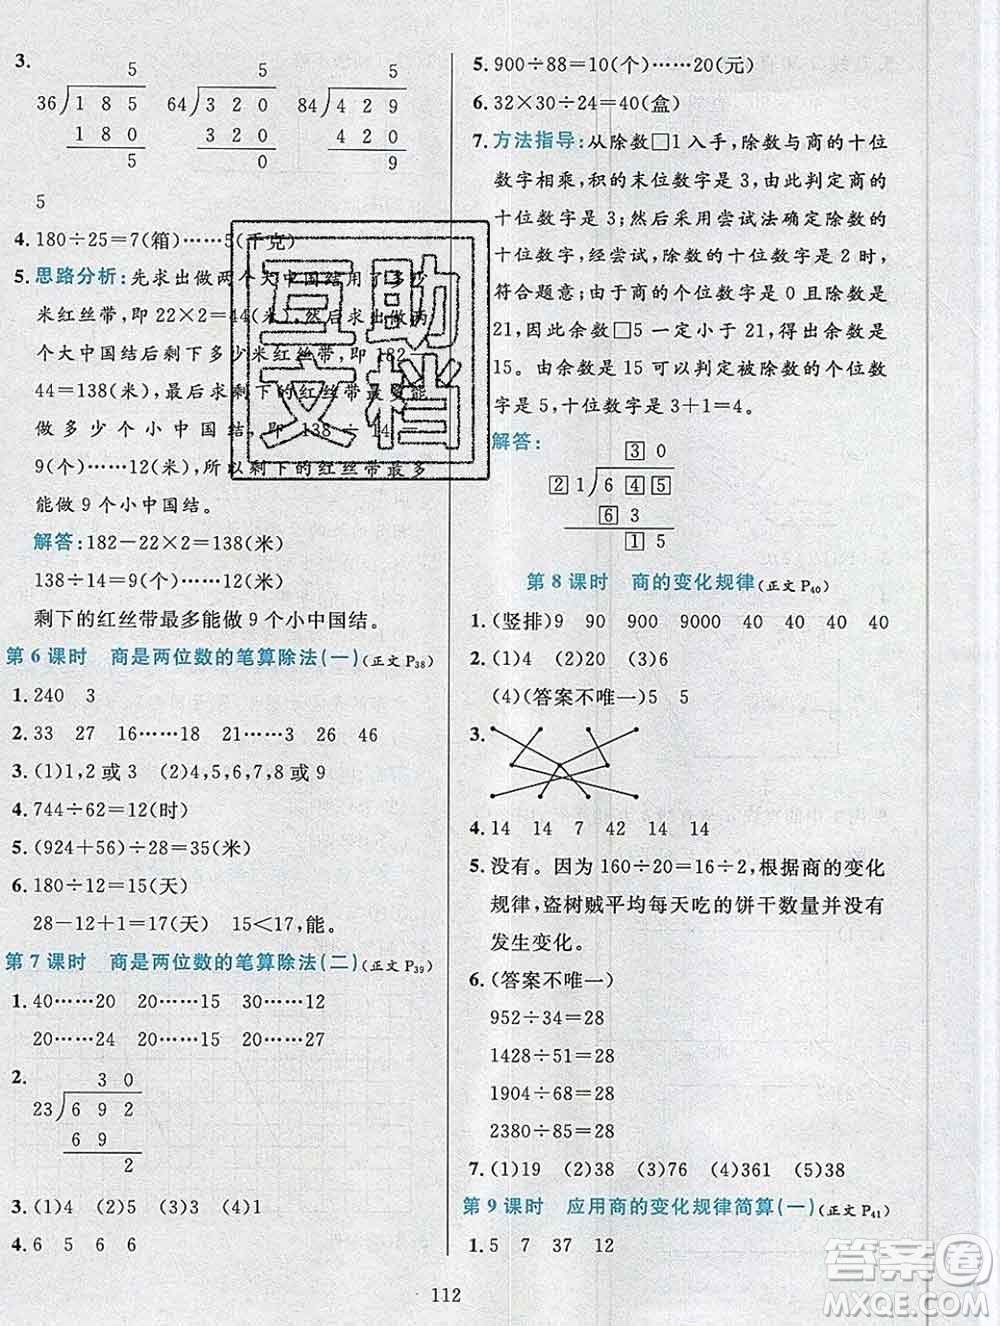 3.
5 5 5
36 185 64 320 84 429
180 320 420
5 0 9
5
4. 180÷25=7(箱)……5(千克)
5. 思路分析:先求出做两个大中国结用了多少
米红丝带,即22×2=44(米),然后求出做两
个大中国结后剩下多少米红丝带,即182-
44=138(米),最后求剩下的红丝带最多能
做多少个小中国结,即138÷14=
9(个)……12(米),所以剩下的红丝带最多
能做9个小中国结。
解答:182-22×2=138(米)
138÷14=9(个)……12(米)
剩下的红丝带最多能做9个小中国结。
第6课时 商是两位数的笔算除法(一)(正文P38)
1. 240 3
2. 33 27 16……18 21……3 26 46
3. (1)1,2或3 (2)4,5,6,7,8或9
4. 744÷62=12(时)
5. (924+56)÷28=35(米)
6. 180÷12=15(天)
28-12+1=17(天) 15<17,能。
第7课时 商是两位数的笔算除法(二)(正文P39)
1. 40……20 20……15 30……12
20……24 20……15 20……27
2.
30
23 692
69
2
3. (1)4 (2)5 (3)3 (4)1
4. 6 5 6 6
5. 900÷88=10(个)……20(元)
6. 32×30÷24=40(盒)
7. 方法指导:从除数□1入手,除数与商的十位
数字相乘,积的末位数字是3,由此判定商的
十位数字是3;然后采用尝试法确定除数的
十位数字,经尝试,除数的十位数字是2时,
符合题意;由于商的个位数是0且除数是
21,因此余数□5一定小于21,得出余数是
15。由余数是15可以判定被除数的个位数
字是5,十位数字是3+1=4。
解答:
3 0
2 1 6 4 5
6 3
1 5
第8课时 商的变化规律(正文P40)
1. (竖排)9 90 900 9000 40 40 40
2. (1)4 (2)20 (3)6
(4)(答案不唯一)5 5
3.
4. 14 14 7 42 14 14
5. 没有。因为160÷20=16÷2,根据商的变化
规律,盗树贼平均每天吃的饼干数量并没有
发生变化。
6. (答案不唯一)
952÷34=28
1428÷51=28
1904÷68=28
2380÷85=28
7. (1)19 (2)38 (3)76 (4)361 (5)38
第9课时 应用商的变化规律简算(一)(正文P41)
1. 5 7 37 12
112
互助
文档
答案圈
MXQE.COM